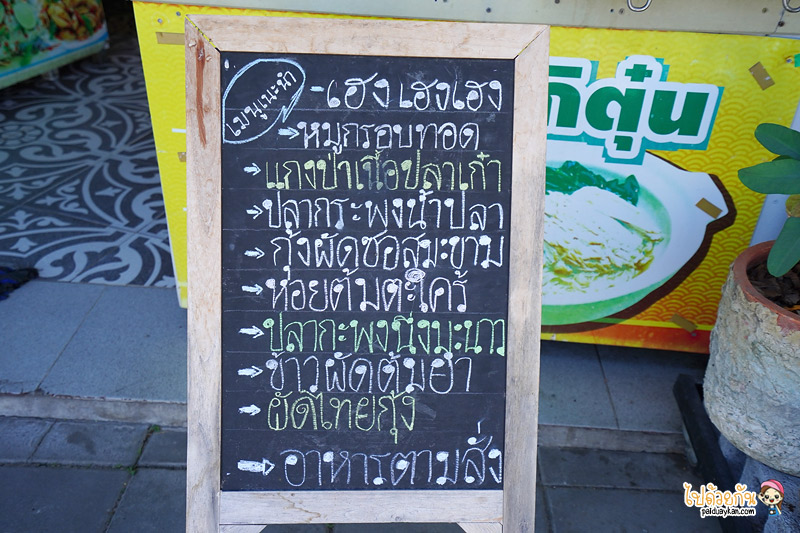 เมนูแนะนำ
-เฮง เฮงเฮง
→หมูกรอบทอด
→แกงป่าเนื้อปลาเก๋า
→ปลากระพงน้ำปลา
→กุ้งผัดซอสมะขาม
→หอยต้มตะไคร้
→ปลากะพงนึ่งมะนาว
→ข้าวผัดต้มยำ
→ผัดไทยกุ้ง
→อาหารตามสั่ง
ตุ๋น
ไปด้วยกัน
paiduaykan.com